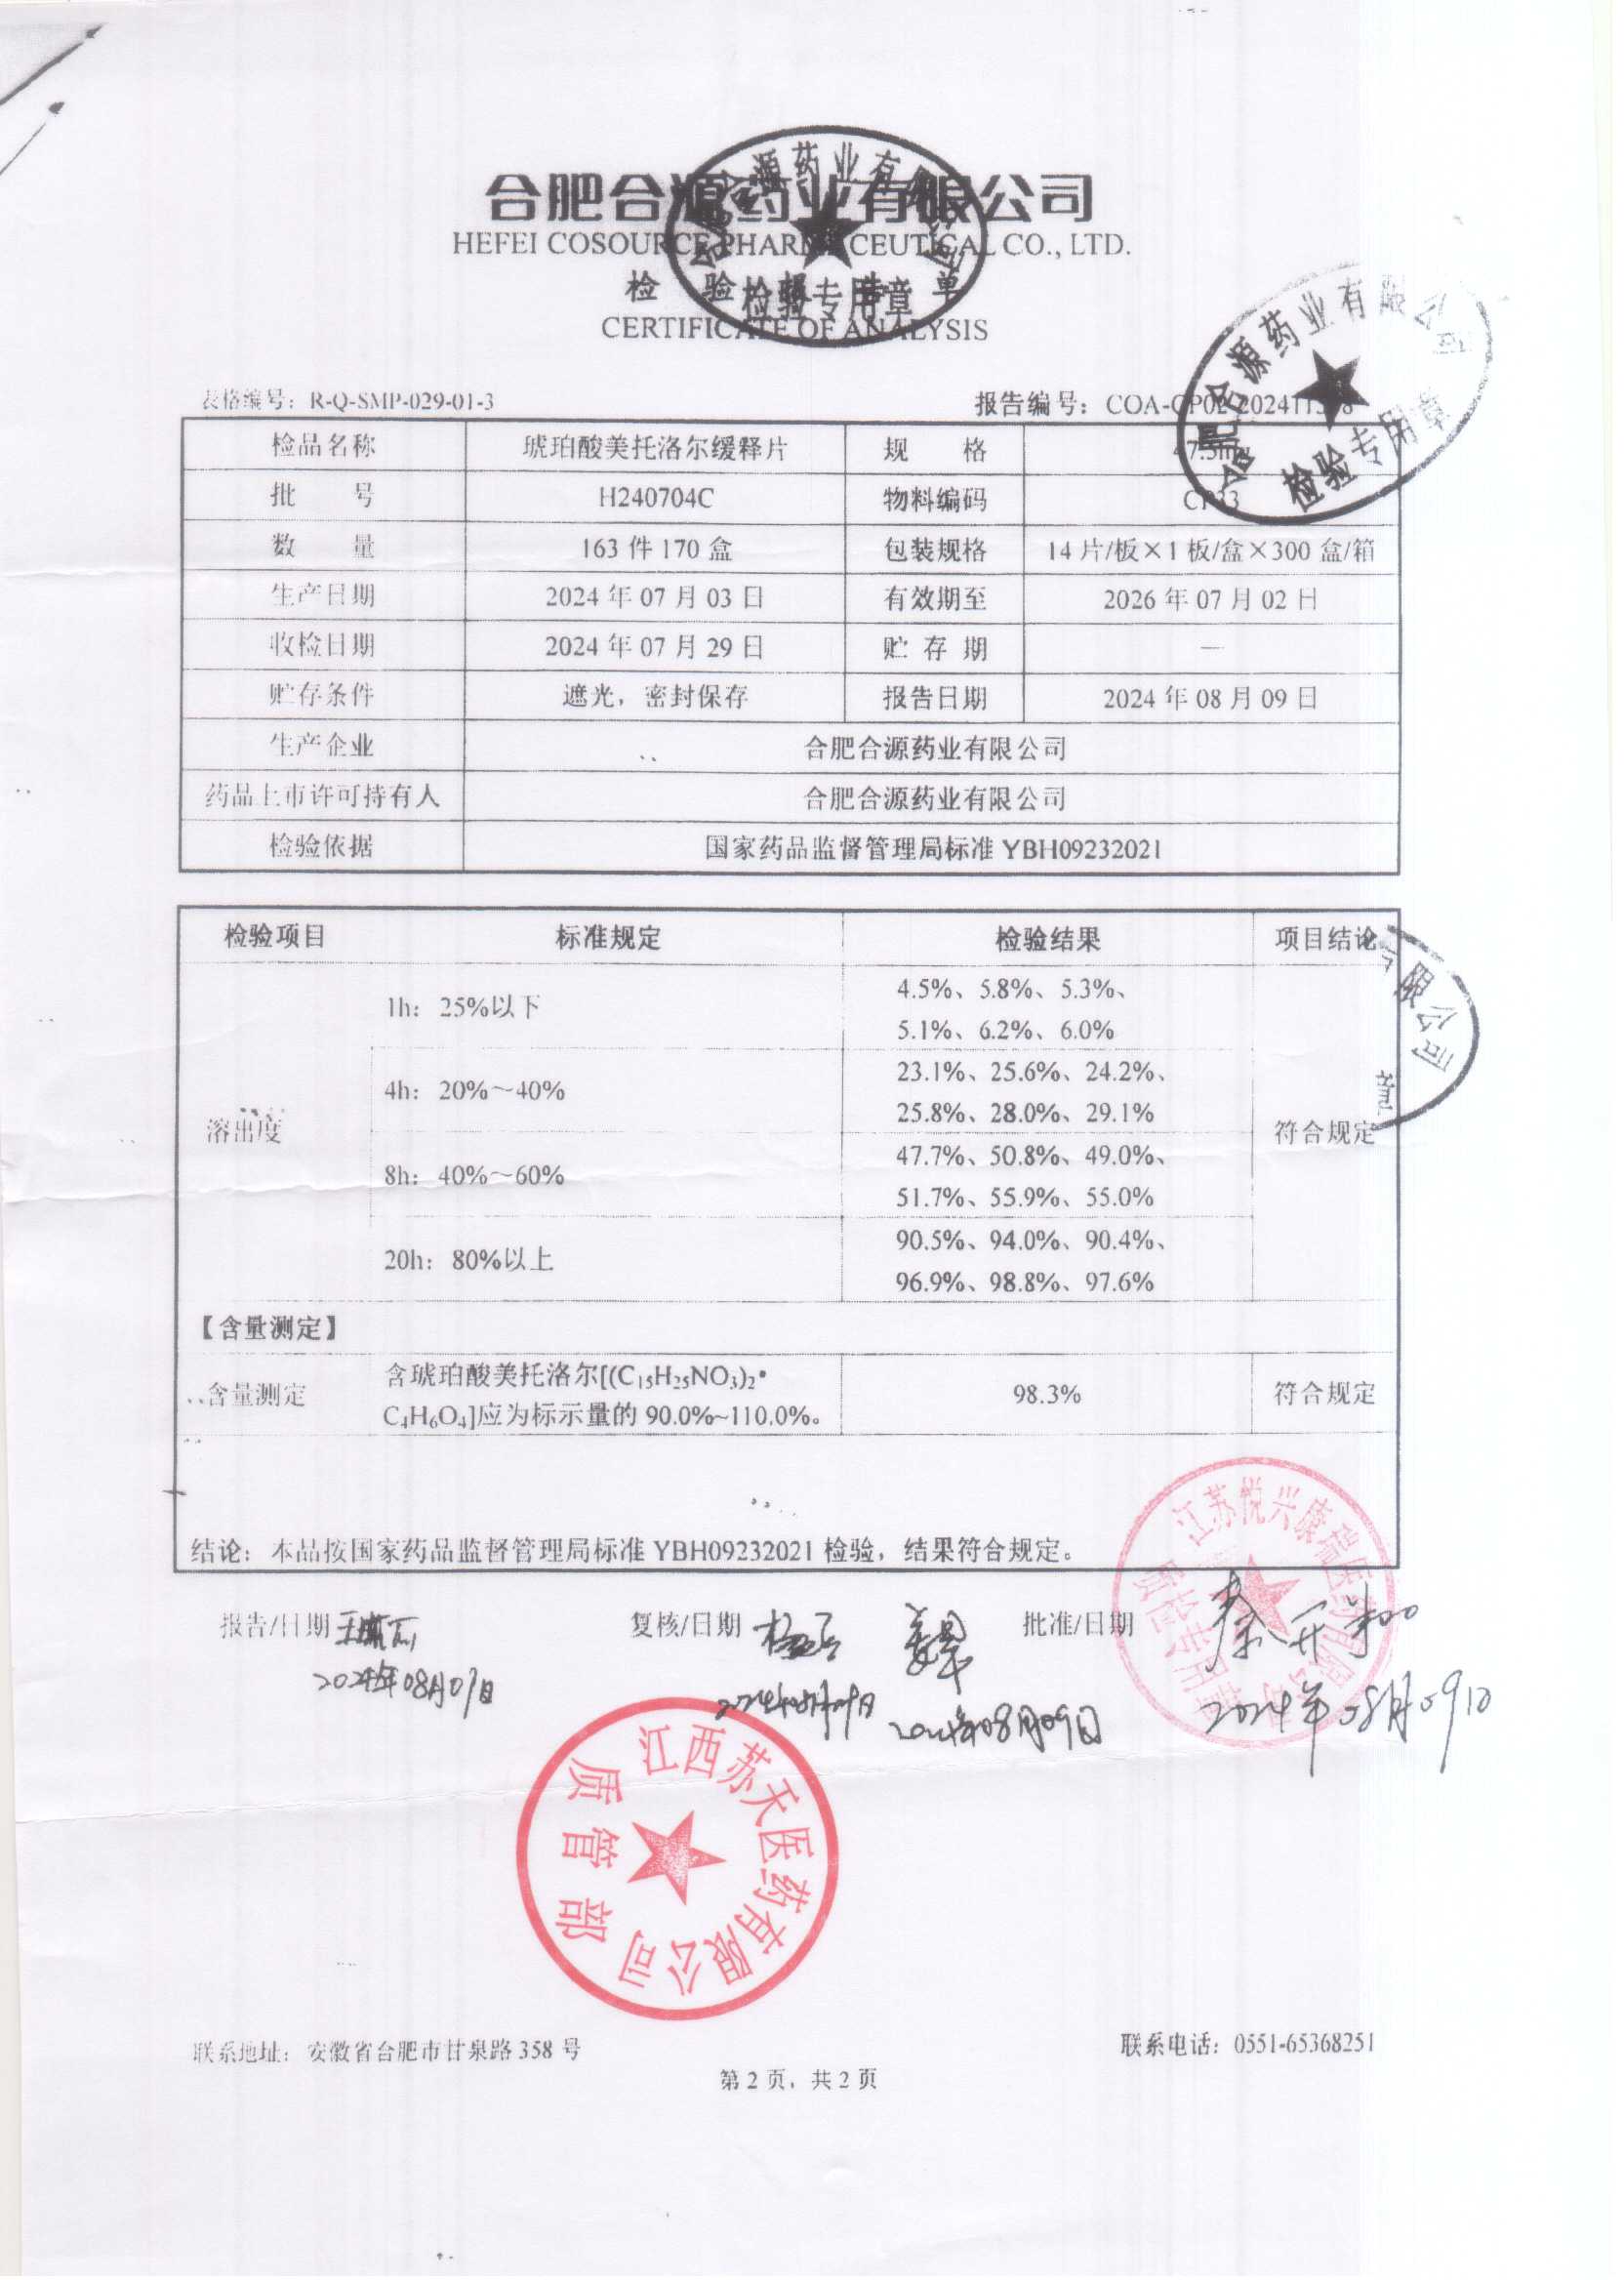 合肥合源药业有限公司
HEFEI COSOURCE PHARMACEUTICAL CO., LTD.
检验报告单
CERTIFICATE OF ANALYSIS
合肥合源药业有限公司
检验专用章
合肥合源药业有限公司
检验专用章
表格编号：R-Q-SMP-029-01-3 报告编号：
检品名称 琥珀酸美托洛尔缓释片 规 格
批 号 H240704C 物料编码
数 量 163 件 170 盒 包装规格 14 片/板×1 板/盒×300 盒/箱
生产日期 2024 年 07 月 03 日 有效期至 2026 年 07 月 02 日
收检日期 2024 年 07 月 29 日 贮 存 期 —
贮存条件 遮光，密封保存 报告日期 2024 年 08 月 09 日
生产企业 合肥合源药业有限公司
药品上市许可持有人 合肥合源药业有限公司
检验依据 国家药品监督管理局标准 YBH09232021
检验项目 标准规定 检验结果 项目结论
限公司
章
溶出度 1h：25%以下 4.5%、5.8%、5.3%、
5.1%、6.2%、6.0%
4h：20%～40% 23.1%、25.6%、24.2%、
25.8%、28.0%、29.1%
符合规定
8h：40%～60% 47.7%、50.8%、49.0%、
51.7%、55.9%、55.0%
20h：80%以上 90.5%、94.0%、90.4%、
96.9%、98.8%、97.6%
【含量测定】
含量测定 含琥珀酸美托洛尔[(C₁₅H₂₅NO₃)₂•
C₄H₆O₄]应为标示量的 90.0%~110.0%。 98.3% 符合规定
结论：本品按国家药品监督管理局标准 YBH09232021 检验，结果符合规定。
江苏悦兴康瑞医药有限公司
质检专用章
报告/日期 复核/日期 批准/日期
2024年08月09日 2024年08月09日
江西苏天医药有限公司
质管部
联系地址：安徽省合肥市甘泉路 358 号 联系电话：0551-65368251
第 2 页，共 2 页